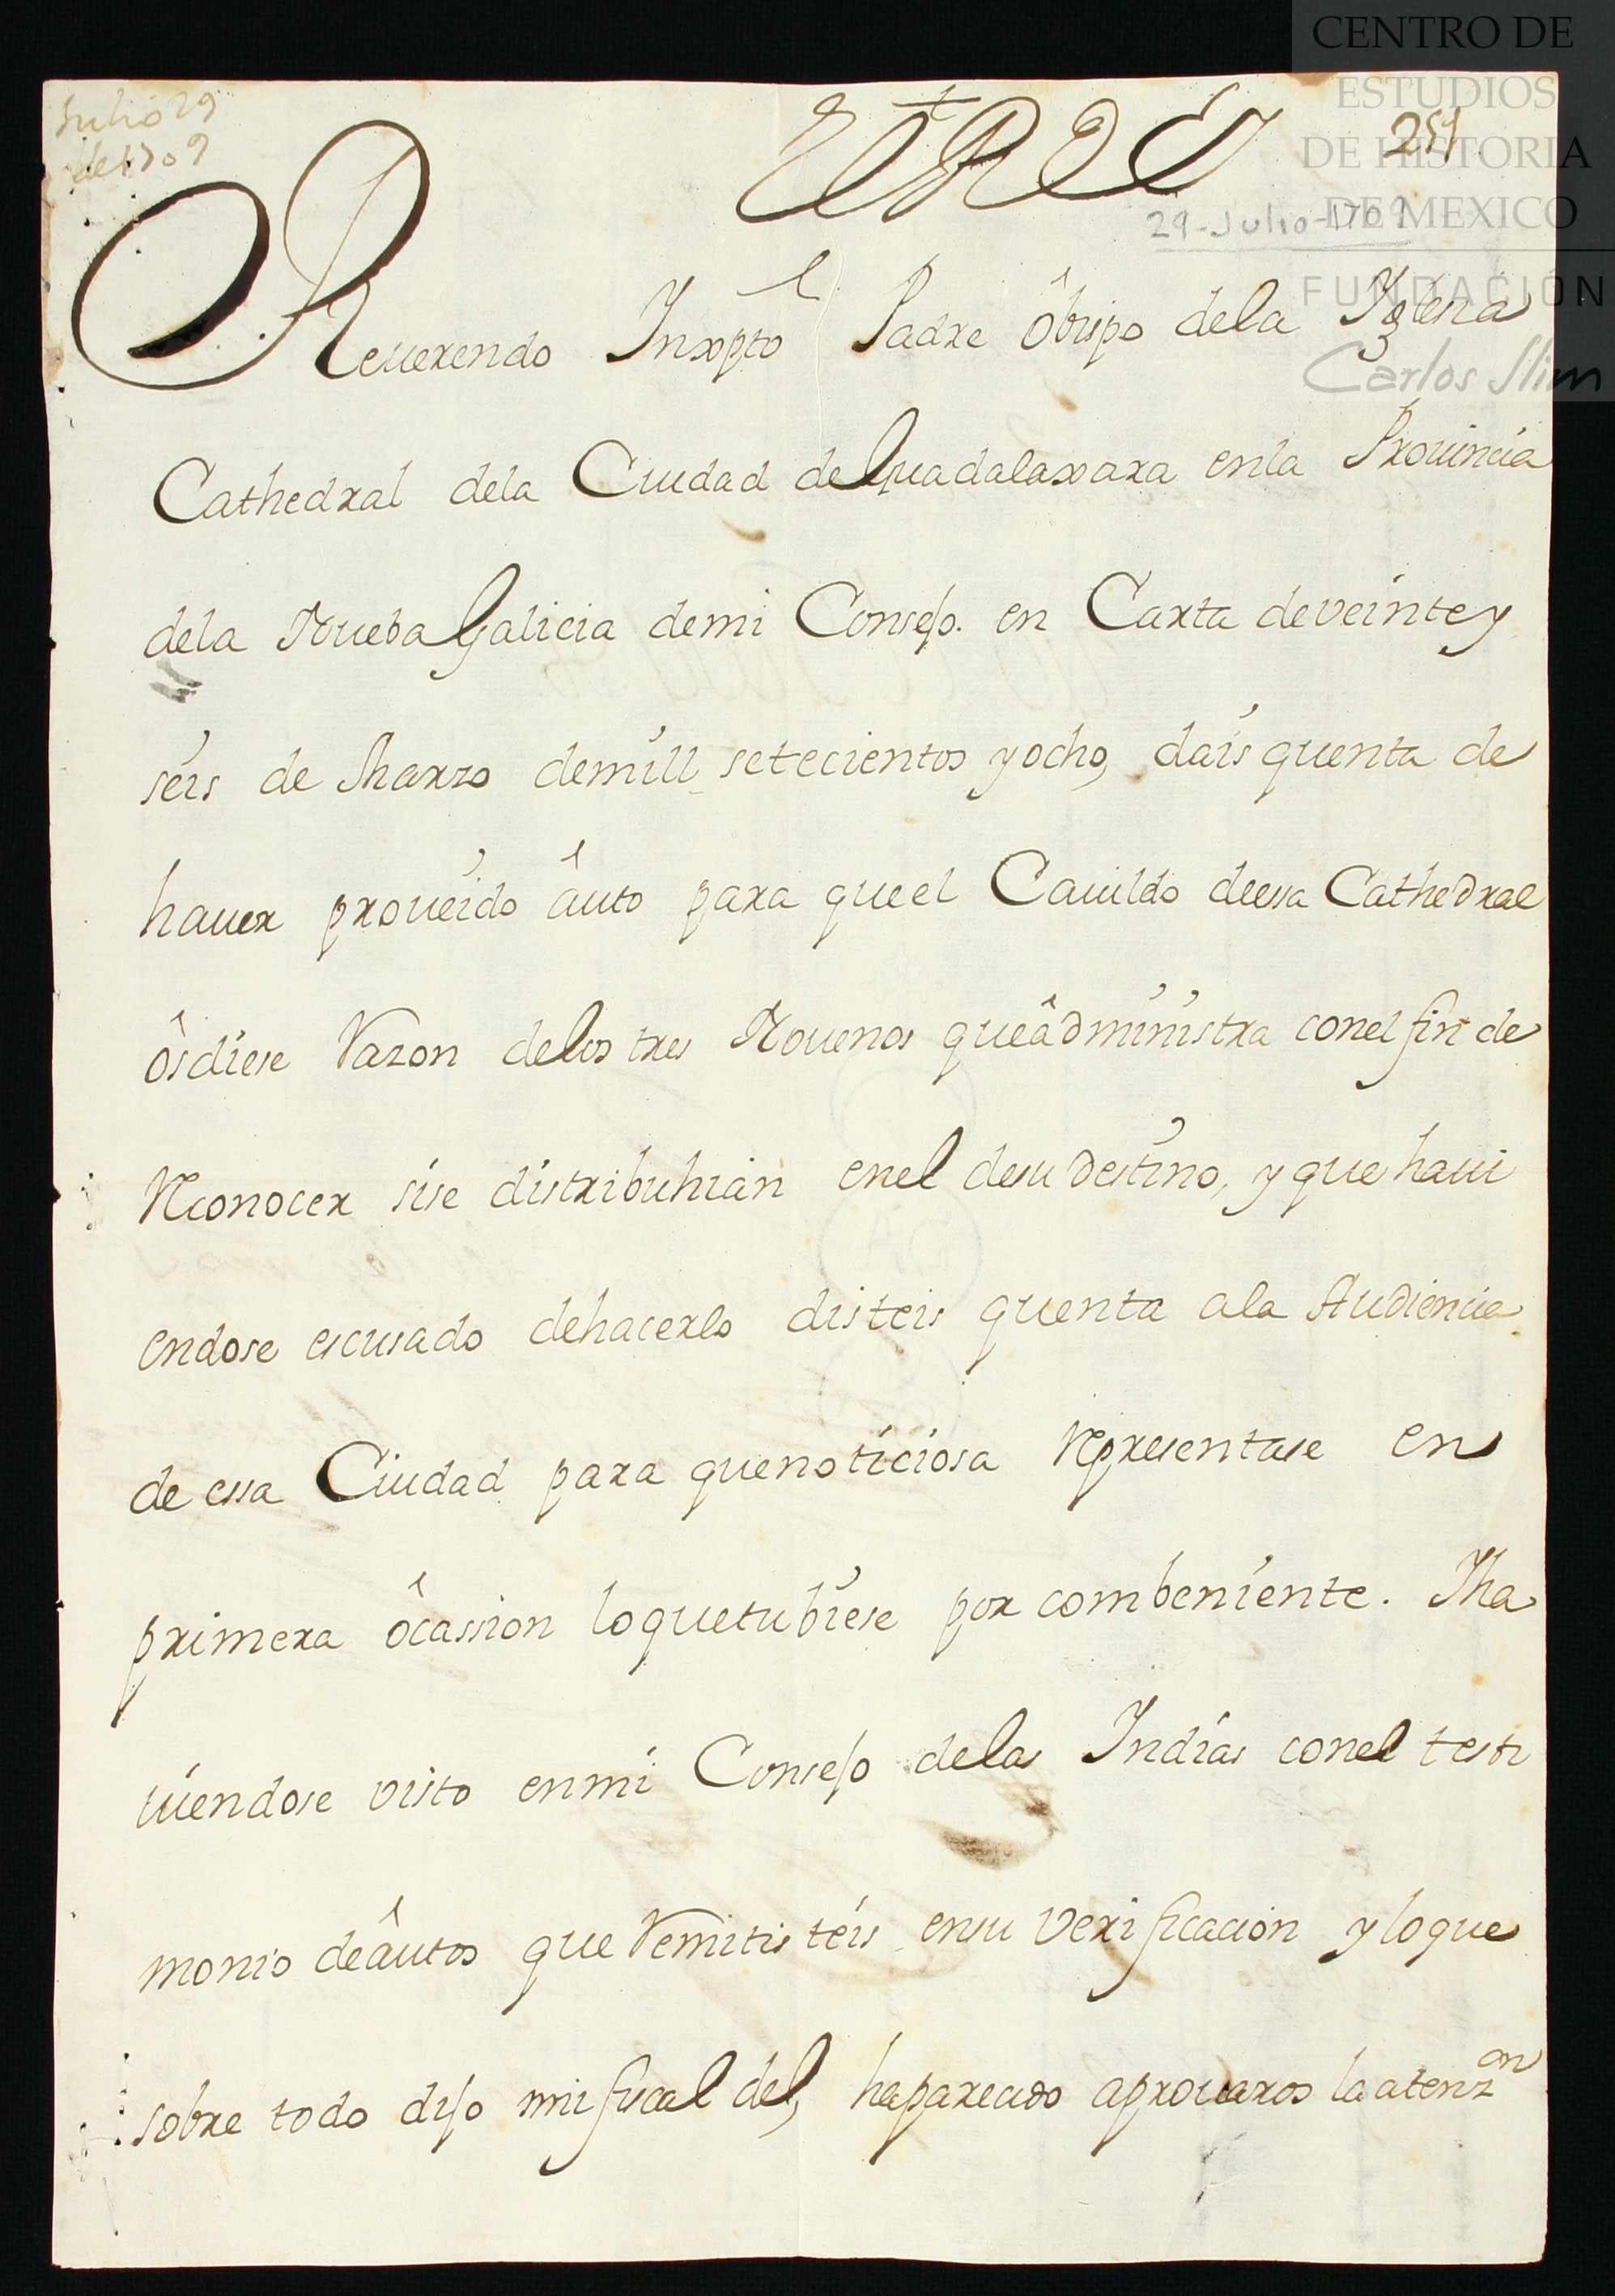 CENTRO DE
ESTUDIOS
DE HISTORIA
DE MEXICO
FUNDACIÓN
Carlos Slim
Julio 29
de 1709
251
29-Julio-1709
El Rey
Reuerendo Inxpto Padre obispo dela Yglesia
Cathedral dela Ciudad de Guadalaxara enla Prouincia
dela Nueba Galicia demi Consejo. en Carta deveinte y
seis de Marzo demill setecientos y ocho, dais quenta de
hauer proueido âuto para que el Cauildo deessa Cathedral
ôsdiese Razon delos tres Nouenos queâdministra conel fin de
Reconocer sise distribuhian enel desu destino, y que haui
endose escusado dehacerlo disteis quenta ala Audiencia
de essa Ciudad para quenoticiosa Representase en
primera ôcassion loquetubiese por combeniente. Yha
uiendose visto enmi Consejo delas Indias conel testi
monio deâutos que Remitisteis ensu verificacion y loque
sobre todo dijo mi fiscal del, haparecido aprouaros la atenzon